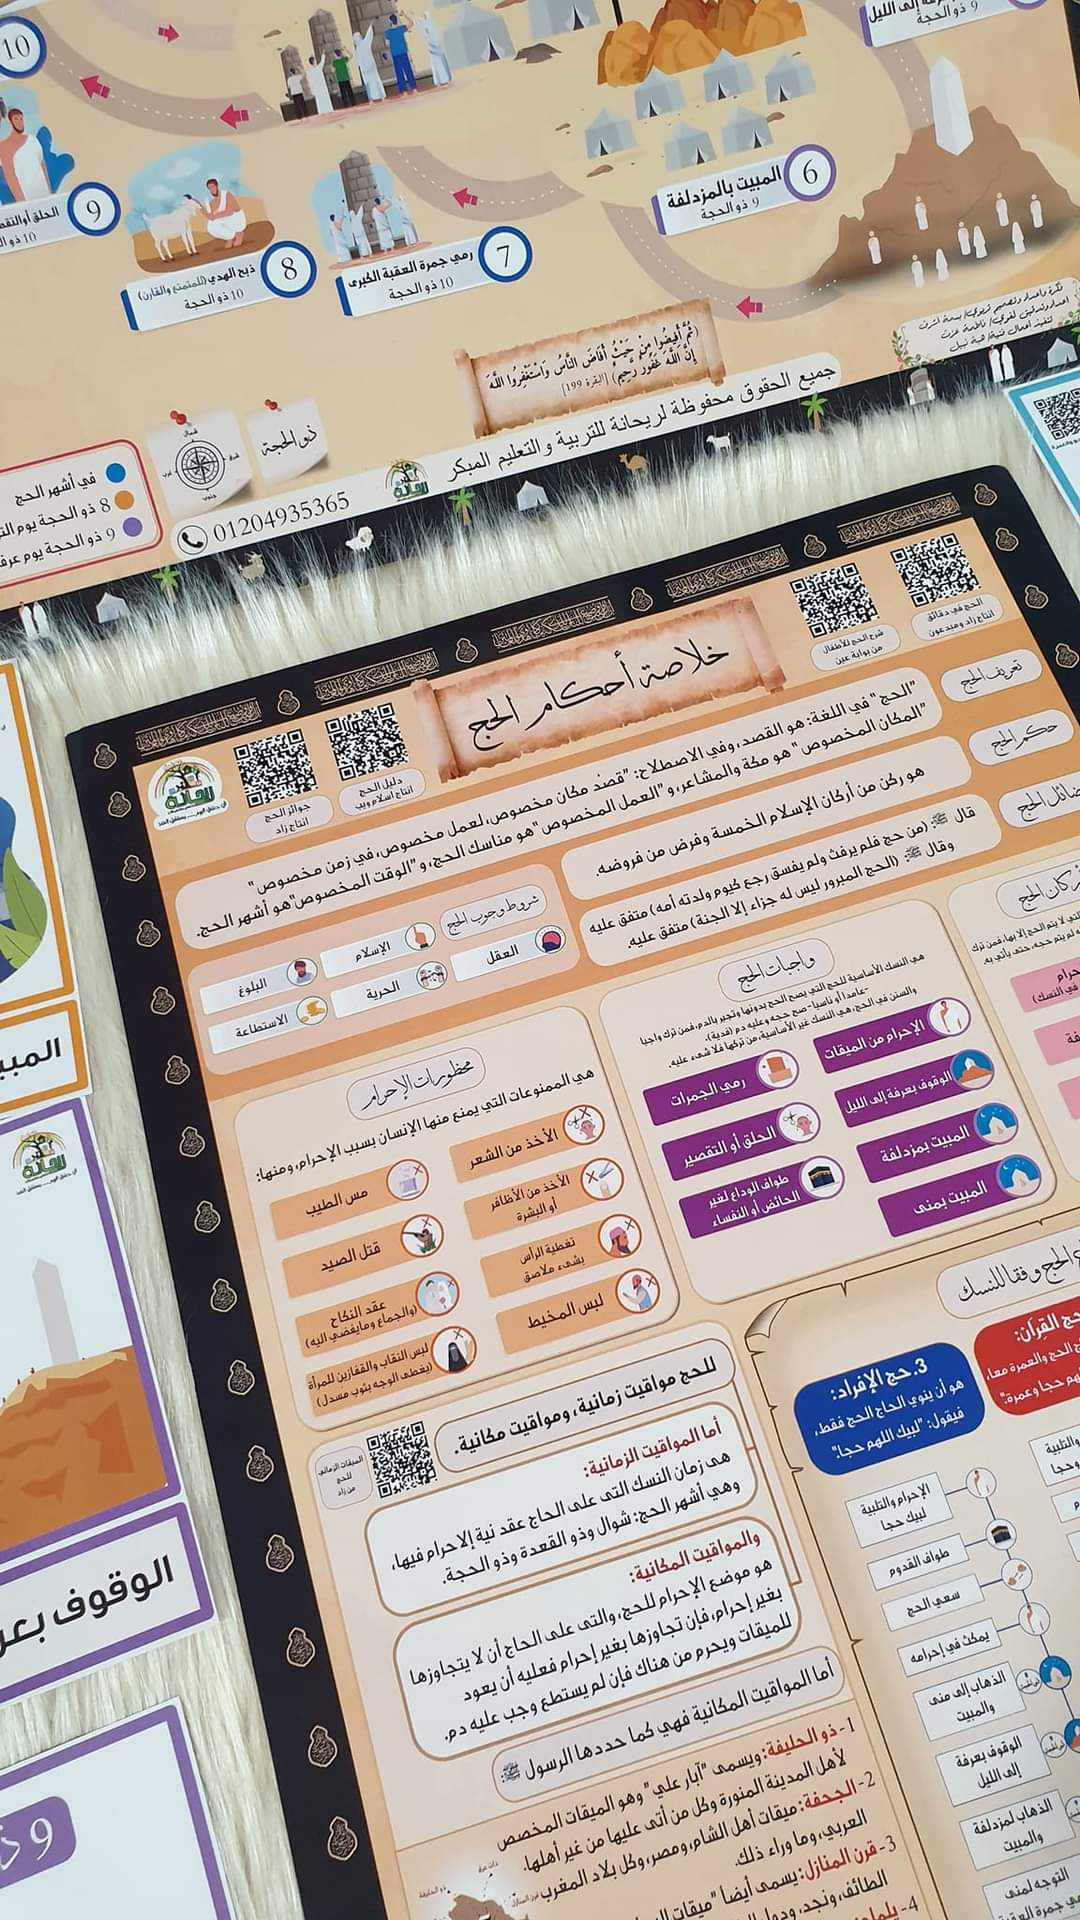 10
9 ذو الحجة
9
10
6
المبيت بالمزدلفة
9 ذو الحجة
7
رمي جمرة العقبة الكبرى
10 ذو الحجة
8
ذبح الهدي (للمتمتع والقارن)
10 ذو الحجة
(ثُمَّ أَفِيضُوا مِنْ حَيْثُ أَفَاضَ النَّاسُ وَاسْتَغْفِرُوا اللَّهَ
إِنَّ اللَّهَ غَفُورٌ رَحِيمٌ) [البقرة 199]
جميع الحقوق محفوظة لريحانة للتربية والتعليم المبكر
01204935365
ذو الحجة
شمال
شرق
غرب
جنوب
في أشهر الحج
8 ذو الحجة يوم
9 ذو الحجة يوم
خلاصة أحكام الحج
الحج في دقائق
انتاج زاد ومبدعون
شرح الحج للأطفال
من بوابة عين
دليل الحج
انتاج اسلام ويب
جوائز الحج
انتاج زاد
ريحانة
تعريف الحج
"الحج" في اللغة: هو القصد، وفي الاصطلاح: "قصد مكان مخصوص، لعمل مخصوص، في زمن مخصوص"
"المكان المخصوص" هو مكة والمشاعر، و"العمل المخصوص" هو مناسك الحج، و"الوقت المخصوص" هو أشهر الحج.
حكم الحج
هو ركن من أركان الإسلام الخمسة وفرض من فروضه.
الحج
قال ﷺ: (من حج فلم يرفث ولم يفسق رجع كيوم ولدته أمه) متفق عليه
وقال ﷺ: (الحج المبرور ليس له جزاء إلا الجنة) متفق عليه.
شروط وجوب الحج
الإسلام
البلوغ
العقل
الحرية
الاستطاعة
الحج
واجبات الحج
هي النسك الأساسية للحج التي يصح الحج بدونها وتجبر بالدم، فمن ترك واجبا
-عامدا أو ناسيا- صح حجه وعليه دم (فدية).
والسنن في الحج: هي النسك غير الأساسية، من تركها فلا شيء عليه.
الإحرام من الميقات
رمي الجمرات
الوقوف بعرفة إلى الليل
الحلق أو التقصير
المبيت بمزدلفة
طواف الوداع لغير
الحائض أو النفساء
المبيت بمنى
محظورات الإحرام
هي الممنوعات التي يمنع منها الإنسان بسبب الإحرام، ومنها:
الأخذ من الشعر
مس الطيب
الأخذ من الأظافر
أو البشرة
قتل الصيد
تغطية الرأس
بشيء ملاصق
عقد النكاح
(والجماع ومايفضي اليه)
لبس المخيط
لبس النقاب والقفازين للمرأة
(يغطى الوجه بثوب مسدل)
الحج وفقا للنسك
حج القران:
الحج والعمرة معا،
حجا وعمرة".
3. حج الإفراد:
هو أن ينوي الحاج الحج فقط،
فيقول: "لبيك اللهم حجا".
الإحرام والتلبية
لبيك حجا
طواف القدوم
سعي الحج
يمكث في إحرامه
الذهاب إلى منى
والمبيت
الوقوف بعرفة
إلى الليل
الذهاب لمزدلفة
والمبيت
التوجه لمنى
للحج مواقيت زمانية، ومواقيت مكانية.
الميقات الزماني
للحج
من زاد
أما المواقيت الزمانية:
هي زمان النسك التي على الحاج عقد نية الإحرام فيها،
وهي أشهر الحج: شوال وذو القعدة وذو الحجة.
والمواقيت المكانية:
هو موضع الإحرام للحج، والتي على الحاج أن لا يتجاوزها
بغير إحرام، فإن تجاوزها بغير إحرام فعليه أن يعود
للميقات ويحرم من هناك فإن لم يستطع وجب عليه دم.
أما المواقيت المكانية فهي كما حددها الرسول ﷺ
1- ذو الحليفة: ويسمى "آبار علي" وهو الميقات المخصص
لأهل المدينة المنورة وكل من أتى عليها من غير أهلها.
2- الجحفة: ميقات أهل الشام، ومصر، وكل بلاد المغرب
العربي، وما وراء ذلك.
3- قرن المنازل: يسمى أيضاً "ميقات
الطائف، ونجد،
4-
ذو الحليفة
ذات عرق
قرن المنازل
ريحانة
9